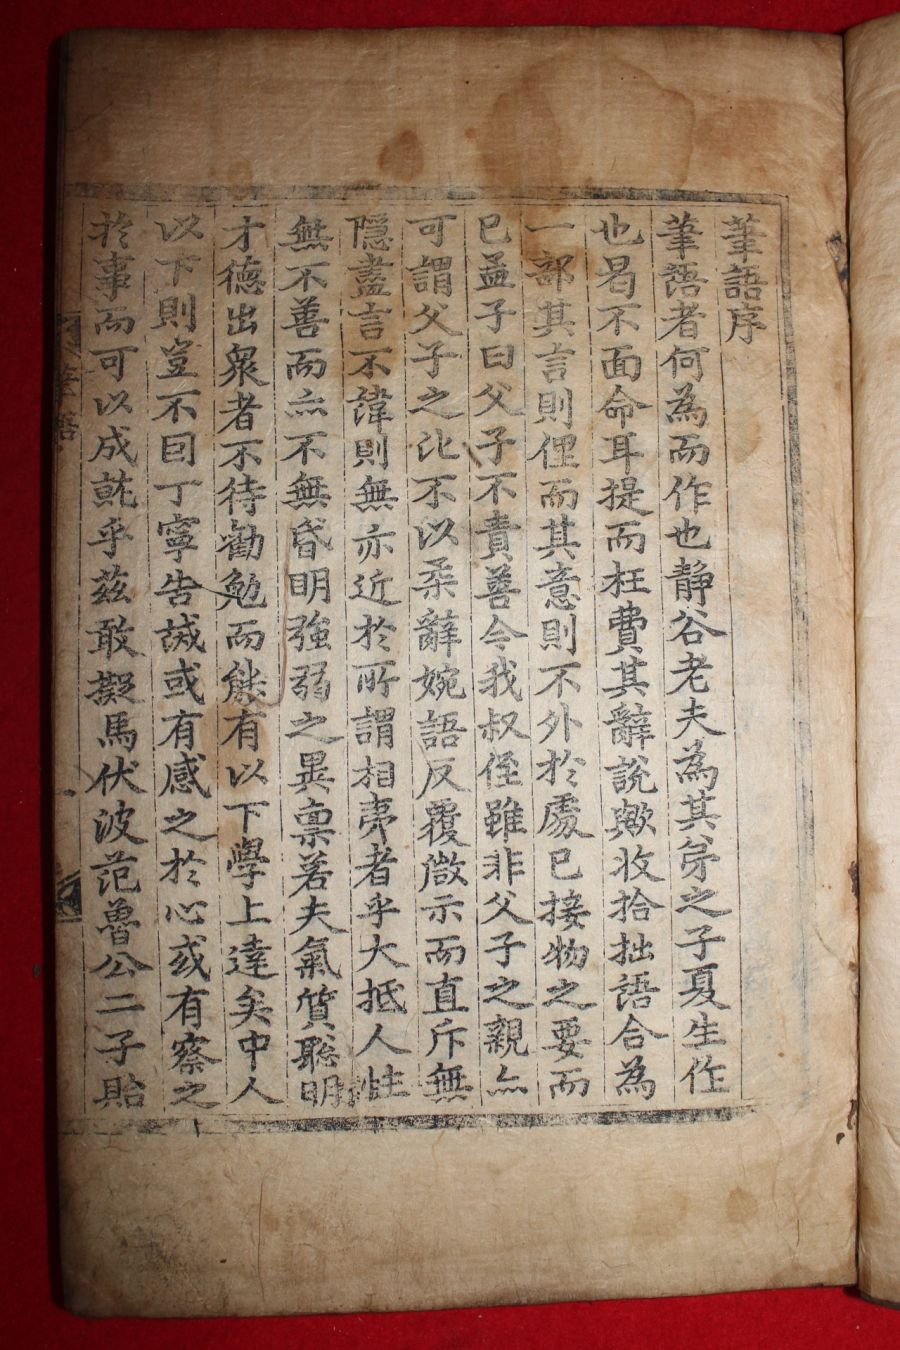 筆語序
筆語者何為而作也靜谷老夫為其弟之子夏生作
也曷不面命耳提而枉費其辭說歟收拾拙語合為
一部其言則俚而其意則不外於處已接物之要而
已孟子曰父子不責善今我叔侄雖非父子之親亦
可謂父子之比不以柔辭婉語反覆微示而直斥無
隱盡言不諱則無亦近於所謂相夷者乎大抵人性
無不善而亦不無昏明強弱之異稟若夫氣質聡明
才德出衆者不待勸勉而能有以下學上達矣中人
以下則豈不因丁寧告誡或有感之於心或有察之
於事而可以成就乎茲敢擬馬伏波范魯公二子貽
筆語
一